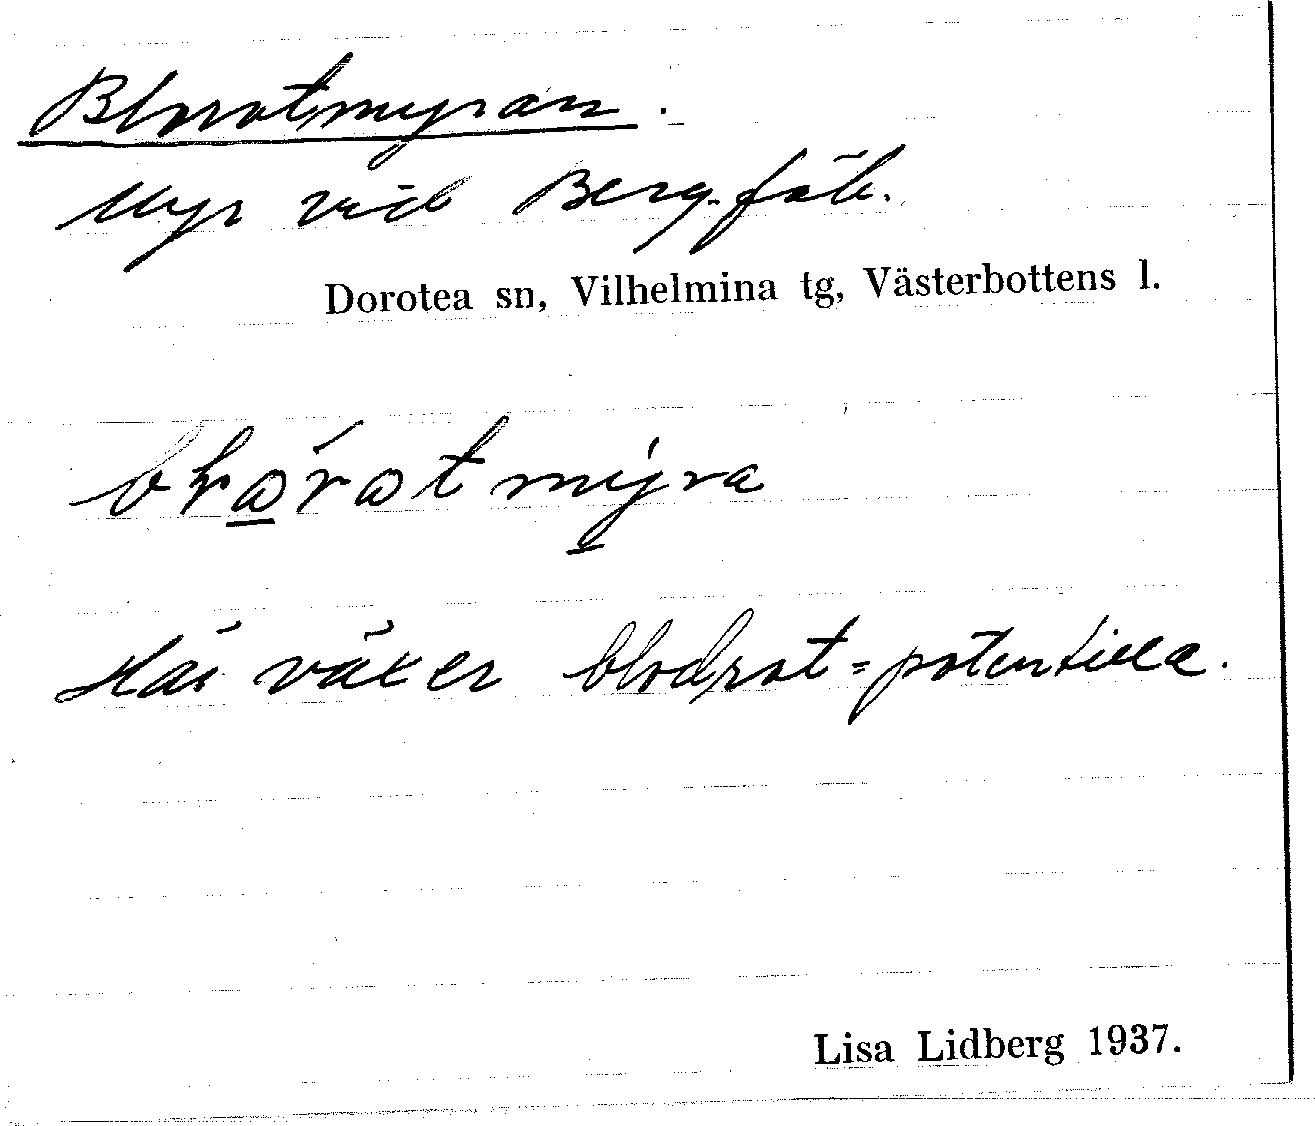 Blorotmyran.
Myr vid Berg. fäb.
Dorotea sn, Vilhelmina tg, Västerbottens l.
Här växer blodrot = potentilla.
Lisa Lidberg 1937.